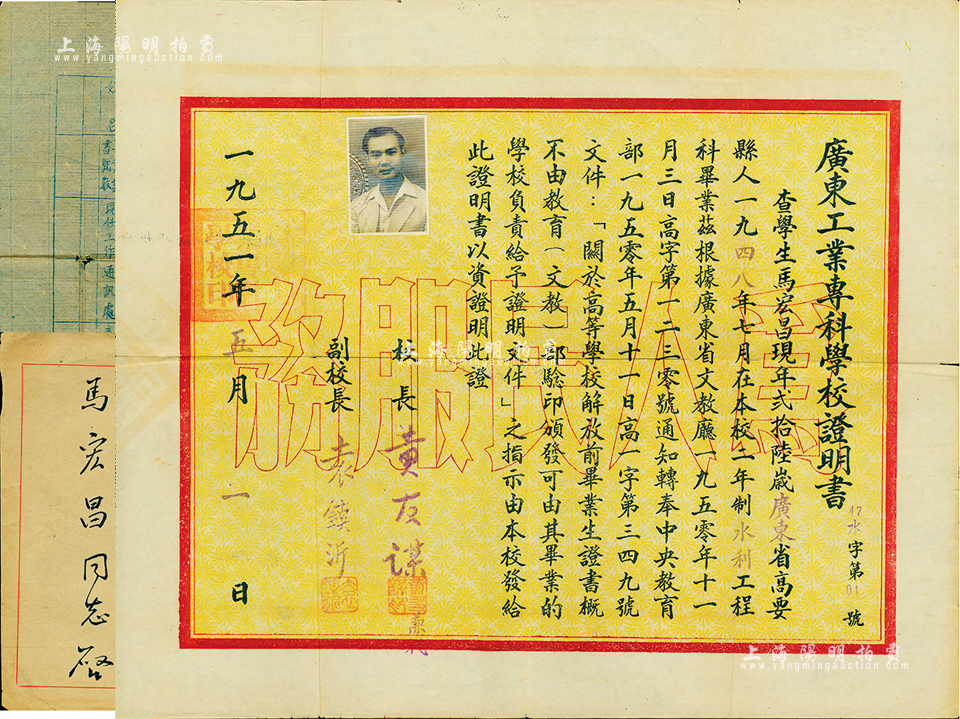 上海陽明拍賣
www.yangmingauction.com
廣東工業專科學校證明書
47水字第01號
查學生馬宏昌現年弍拾陸歲廣東省高要
縣人一九四八年七月在本校二年制水利工程
科畢業茲根據廣東省文教廳一九五零年十一
月三日高字第一二三零號通知轉奉中央教育
部一九五零年五月十一日高一字第三四九號
文件：「關於高等學校解放前畢業生證書概
不由教育（文教）部驗印頒發可由其畢業的
學校負責給予證明文件」之指示由本校發給
此證明書以資證明此證
校長 黃友謀
副校長 袁鎮沂
一九五一年五月一日
為人民服務
上海陽明拍賣
www.yangmingauction.com
上海陽明拍賣
www.yangmingauction.com
現任工作
通訊處
馬宏昌同志啓